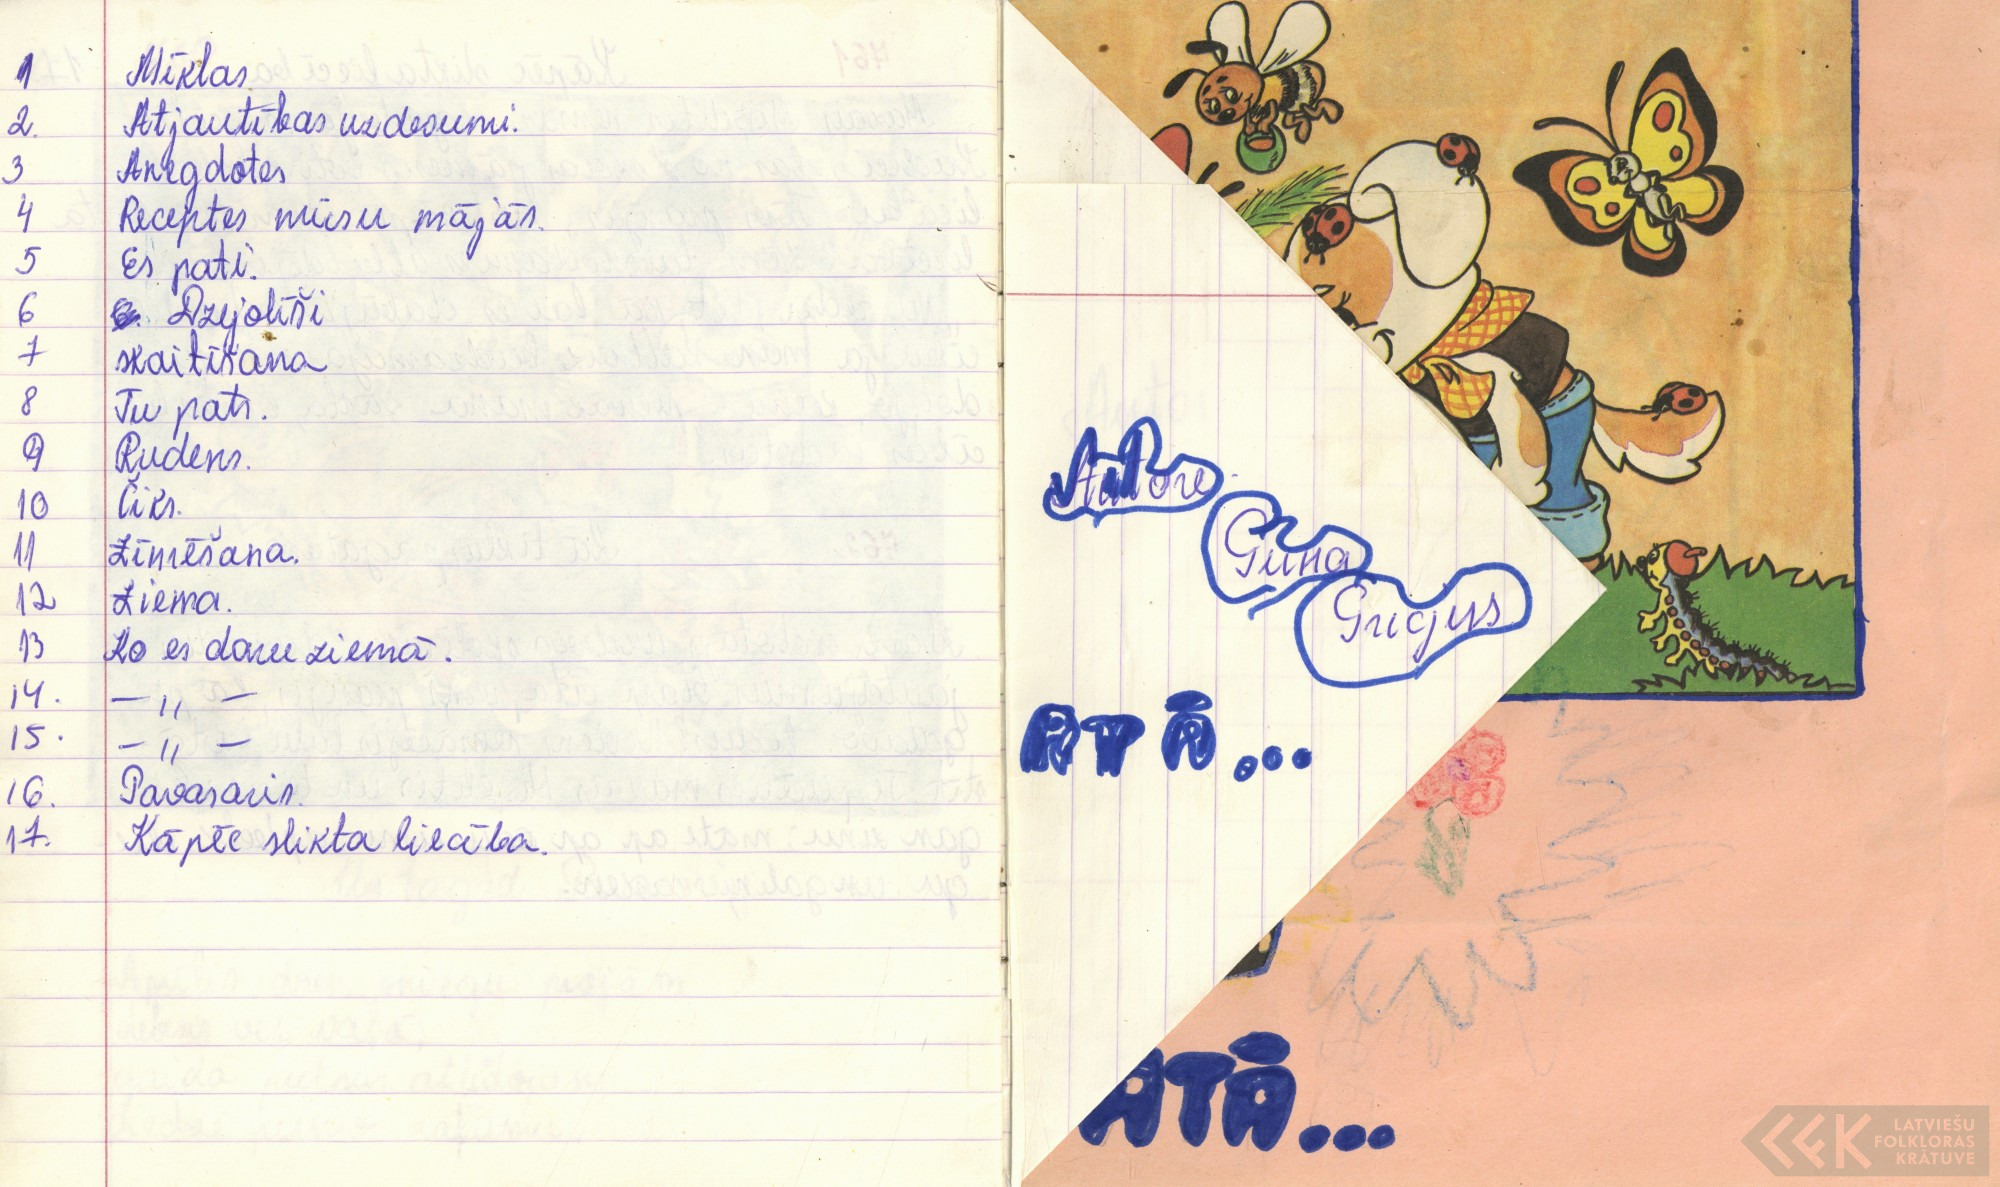 1 Mīklas
2. Atjautības uzdesumi.
3 Anegdotes
4 Receptes mūsu mājās.
5 Es pati.
6 Dzejolīši
7 skaitīšana
8 Tu pats.
9 Rudens.
10 Čiks.
11 Zīmēšana.
12 Ziema.
13 Ko es daru ziemā.
14. — ,, —
15. — ,, —
16. Pavasaris.
17. Kāpēc slikta liecība.
Autore
Guna
Grigus
ATĀ...
ATĀ...
LATVIEŠU
FOLKLORAS
KRĀTUVE